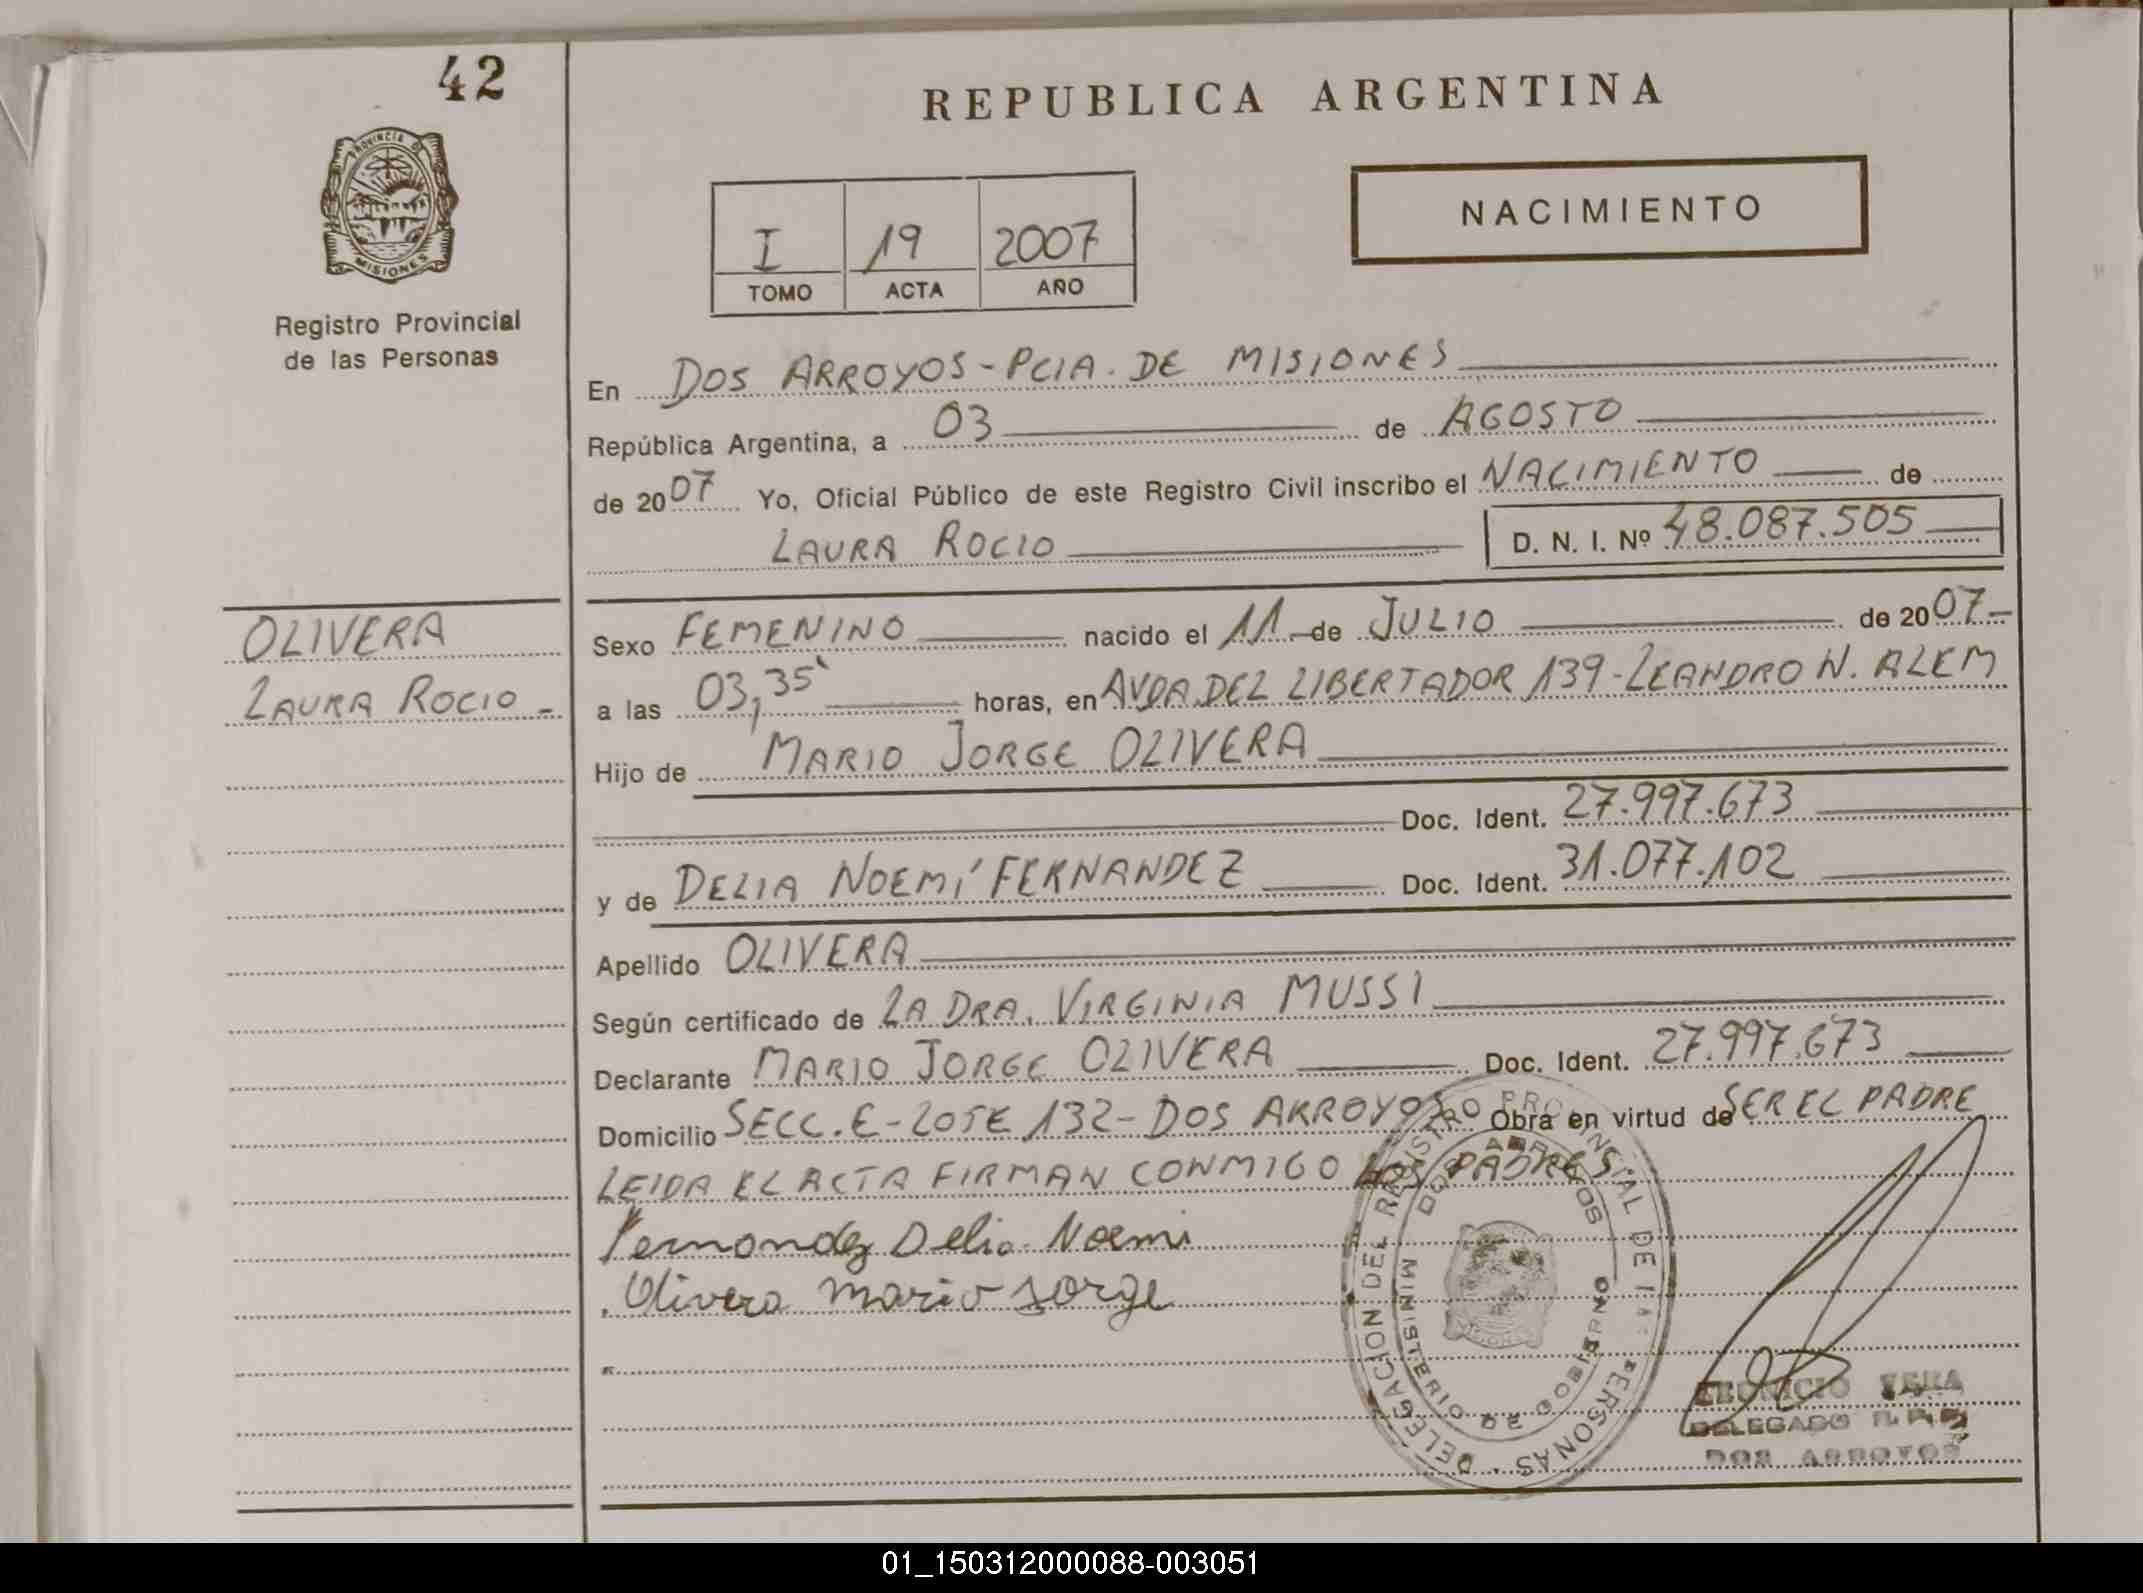 42
REPUBLICA ARGENTINA
PROVINCIA DE
MISIONES
Registro Provincial
de las Personas
I 19 2007
TOMO ACTA AÑO
NACIMIENTO
En DOS ARROYOS - PCIA. DE MISIONES
República Argentina, a 03 de AGOSTO
de 2007 Yo, Oficial Público de este Registro Civil inscribo el NACIMIENTO de
LAURA ROCIO D. N. I. Nº 48.087.505
OLIVERA
LAURA ROCIO -
Sexo FEMENINO nacido el 11 de JULIO de 2007-
a las 03,35 horas, en AVDA. DEL LIBERTADOR 139 - LEANDRO N. ALEM
Hijo de MARIO JORGE OLIVERA
Doc. Ident. 27.997.673
y de DELIA NOEMÍ FERNANDEZ Doc. Ident. 31.077.102
Apellido OLIVERA
Según certificado de LA DRA. VIRGINIA MUSSI
Declarante MARIO JORGE OLIVERA Doc. Ident. 27.997.673
Domicilio SECC. E - LOTE 132 - DOS ARROYOS Obra en virtud de SER EL PADRE
LEIDA EL ACTA FIRMAN CONMIGO LOS PADRES.
Fernandez Delia Noemi
Olivera mario jorge
DELEGACION DEL REGISTRO PROVINCIAL DE LAS PERSONAS
DOS ARROYOS
MINISTERIO DE GOBIERNO
VERA
DELEGADO R. P. P.
DOS ARROYOS
01_150312000088-003051